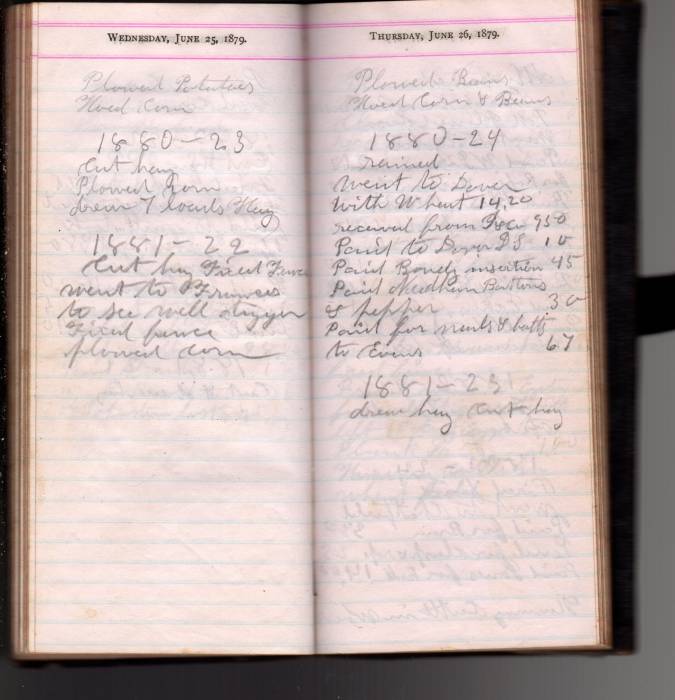 WEDNESDAY, JUNE 25, 1879.
Plowed Potatoes
Hoed Corn
1880-23
Cut hay
Plowed Corn
drew 7 loads Hay
1881-22
Cut hay Fixed Fence
went to Frances
to see well digger
Fixed fence
plowed corn
THURSDAY, JUNE 26, 1879.
Plowed Beans
Hoed Corn & Beans
1880-24
rained
went to Dover
with Wheat 14,20
received from 950
Paid to Dover 10
Paid insertion 45
Paid Buttons
& pepper 30
Paid for & batts
to Evans 67
1881-23
drew hay cut hay